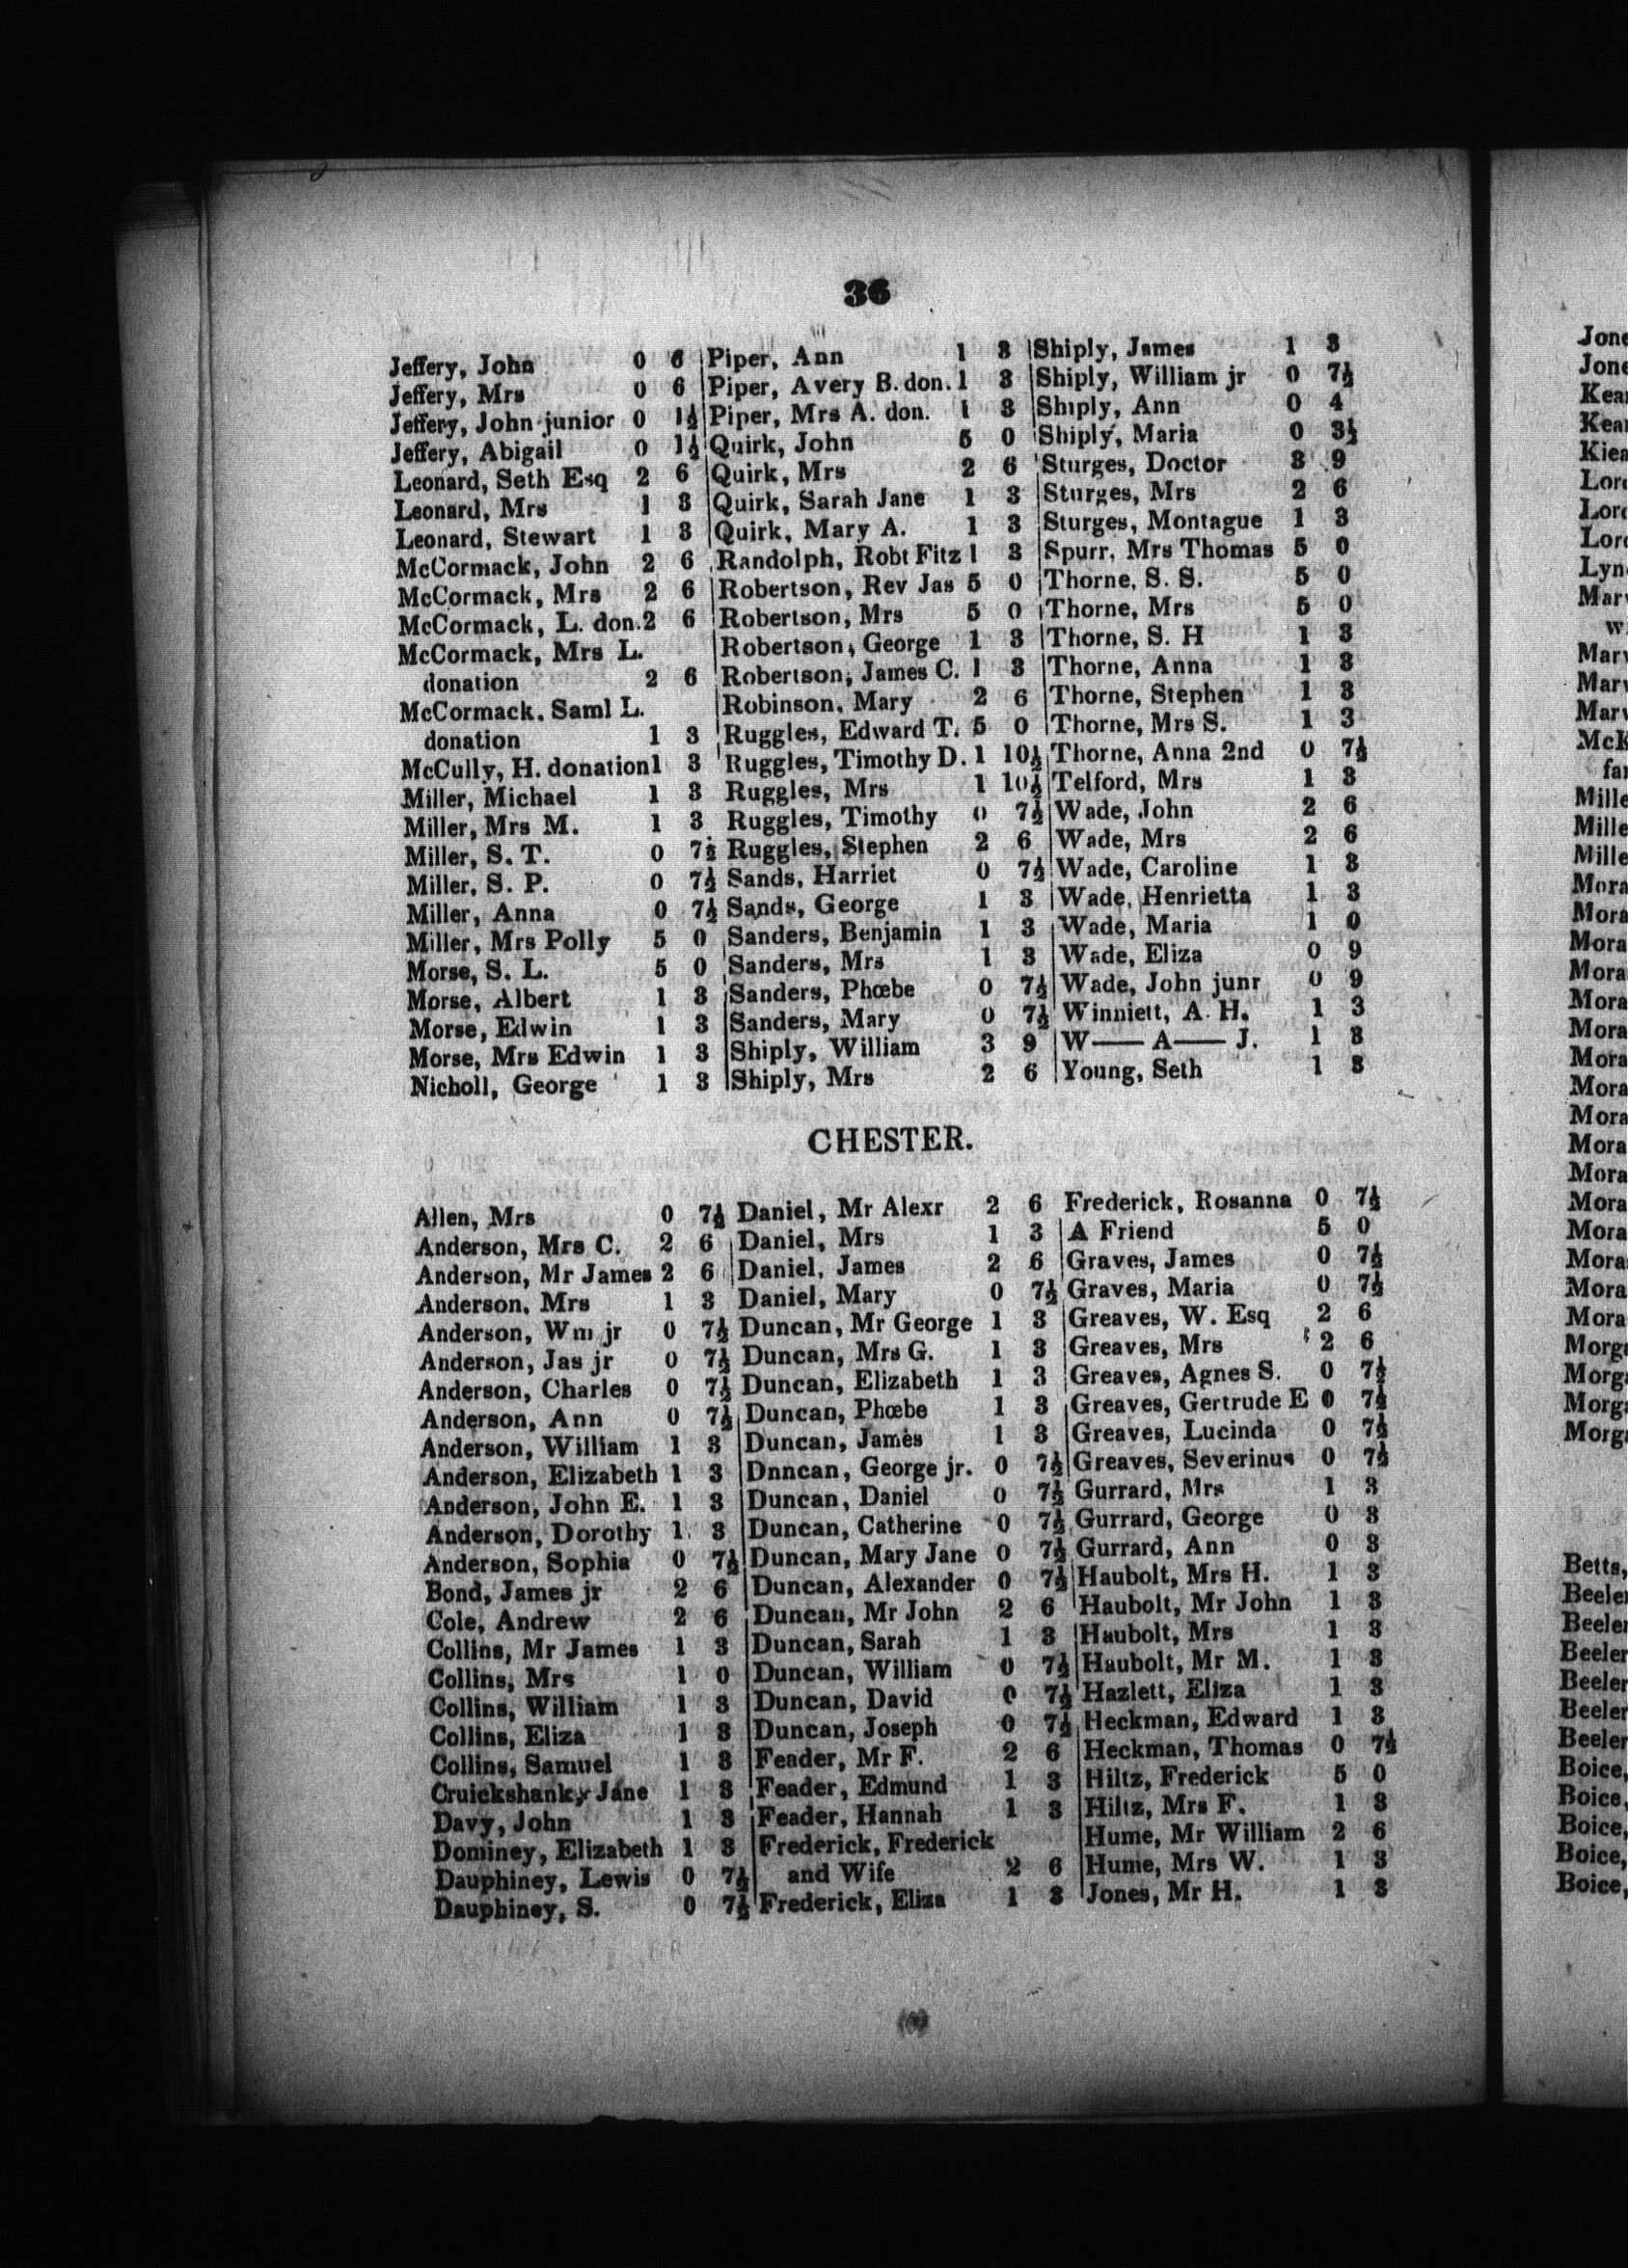 36
Jeffery, John 0 6
Jeffery, Mrs 0 6
Jeffery, John junior 0 1½
Jeffery, Abigail 0 1½
Leonard, Seth Esq 2 6
Leonard, Mrs 1 3
Leonard, Stewart 1 3
McCormack, John 2 6
McCormack, Mrs 2 6
McCormack, L. don. 2 6
McCormack, Mrs L.
donation 2 6
McCormack. Saml L.
donation 1 3
McCully, H. donation 1 3
Miller, Michael 1 3
Miller, Mrs M. 1 3
Miller, S. T. 0 7½
Miller, S. P. 0 7½
Miller, Anna 0 7½
Miller, Mrs Polly 5 0
Morse, S. L. 5 0
Morse, Albert 1 3
Morse, Edwin 1 3
Morse, Mrs Edwin 1 3
Nicholl, George 1 3
Piper, Ann 1 3
Piper, Avery B. don. 1 3
Piper, Mrs A. don. 1 3
Quirk, John 5 0
Quirk, Mrs 2 6
Quirk, Sarah Jane 1 3
Quirk, Mary A. 1 3
Randolph, Robt Fitz 1 3
Robertson, Rev Jas 5 0
Robertson, Mrs 5 0
Robertson, George 1 3
Robertson, James C. 1 3
Robinson, Mary 2 6
Ruggles, Edward T. 5 0
Ruggles, Timothy D. 1 10½
Ruggles, Mrs 1 10½
Ruggles, Timothy 0 7½
Ruggles, Stephen 2 6
Sands, Harriet 0 7½
Sands, George 1 3
Sanders, Benjamin 1 3
Sanders, Mrs 1 3
Sanders, Phœbe 0 7½
Sanders, Mary 0 7½
Shiply, William 3 9
Shiply, Mrs 2 6
Shiply, James 1 3
Shiply, William jr 0 7½
Shiply, Ann 0 4
Shiply, Maria 0 3½
Sturges, Doctor 3 9
Sturges, Mrs 2 6
Sturges, Montague 1 3
Spurr, Mrs Thomas 5 0
Thorne, S. S. 5 0
Thorne, Mrs 5 0
Thorne, S. H 1 3
Thorne, Anna 1 3
Thorne, Stephen 1 3
Thorne, Mrs S. 1 3
Thorne, Anna 2nd 0 7½
Telford, Mrs 1 3
Wade, John 2 6
Wade, Mrs 2 6
Wade, Caroline 1 3
Wade, Henrietta 1 3
Wade, Maria 1 0
Wade, Eliza 0 9
Wade, John junr 0 9
Winniett, A. H. 1 3
W—— A—— J. 1 3
Young, Seth 1 3
CHESTER.
Allen, Mrs 0 7½
Anderson, Mrs C. 2 6
Anderson, Mr James 2 6
Anderson, Mrs 1 3
Anderson, Wm jr 0 7½
Anderson, Jas jr 0 7½
Anderson, Charles 0 7½
Anderson, Ann 0 7½
Anderson, William 1 3
Anderson, Elizabeth 1 3
Anderson, John E. 1 3
Anderson, Dorothy 1 3
Anderson, Sophia 0 7½
Bond, James jr 2 6
Cole, Andrew 2 6
Collins, Mr James 1 3
Collins, Mrs 1 0
Collins, William 1 3
Collins, Eliza 1 3
Collins, Samuel 1 3
Cruickshank, Jane 1 3
Davy, John 1 3
Dominey, Elizabeth 1 3
Dauphiney, Lewis 0 7½
Dauphiney, S. 0 7½
Daniel, Mr Alexr 2 6
Daniel, Mrs 1 3
Daniel, James 2 6
Daniel, Mary 0 7½
Duncan, Mr George 1 3
Duncan, Mrs G. 1 3
Duncan, Elizabeth 1 3
Duncan, Phœbe 1 3
Duncan, James 1 3
Dnncan, George jr. 0 7½
Duncan, Daniel 0 7½
Duncan, Catherine 0 7½
Duncan, Mary Jane 0 7½
Duncan, Alexander 0 7½
Duncan, Mr John 2 6
Duncan, Sarah 1 3
Duncan, William 0 7½
Duncan, David 0 7½
Duncan, Joseph 0 7½
Feader, Mr F. 2 6
Feader, Edmund 1 3
Feader, Hannah 1 3
Frederick, Frederick
and Wife 2 6
Frederick, Eliza 1 3
Frederick, Rosanna 0 7½
A Friend 5 0
Graves, James 0 7½
Graves, Maria 0 7½
Greaves, W. Esq 2 6
Greaves, Mrs 2 6
Greaves, Agnes S. 0 7½
Greaves, Gertrude E 0 7½
Greaves, Lucinda 0 7½
Greaves, Severinus 0 7½
Gurrard, Mrs 1 3
Gurrard, George 0 3
Gurrard, Ann 0 3
Haubolt, Mrs H. 1 3
Haubolt, Mr John 1 3
Haubolt, Mrs 1 3
Haubolt, Mr M. 1 3
Hazlett, Eliza 1 3
Heckman, Edward 1 3
Heckman, Thomas 0 7½
Hiltz, Frederick 5 0
Hiltz, Mrs F. 1 3
Hume, Mr William 2 6
Hume, Mrs W. 1 3
Jones, Mr H. 1 3